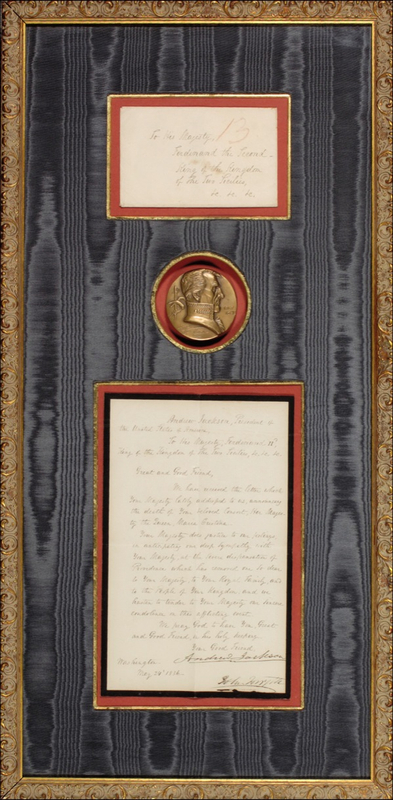 To His Majesty
Ferdinand the Second
King of the Kingdom
of the Two Sicilies,
&c. &c. &c.
13
Andrew Jackson, President of
the United States of America,
To His Majesty, Ferdinand 2d
King of the Kingdom of the Two Sicilies, &c. &c. &c.
Great and Good Friend,
We have received the letter which
Your Majesty lately addressed to us, announcing
the death of Your beloved Consort, Her Majesty
the Queen Maria Christina.
Your Majesty does justice to our feelings
in anticipating our deep sympathy with
Your Majesty at the dispensation of
Providence which has removed one so dear
to Your Majesty, to Your Royal Family and
to the People of Your Kingdom and we
hasten to tender to Your Majesty our sincere
condolence on this afflicting event.
We pray God to have You, Great
and Good Friend, in his holy keeping.
Your Good Friend,
Andrew Jackson
Washington,
May 1836.
John Forsyth